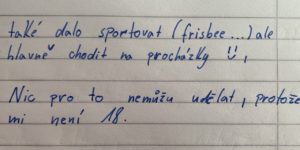 také dalo sportovat (frisbee...) ale
hlavně chodit na procházky !!,
Nic pro to nemůžu udělat, protože
mi není 18.